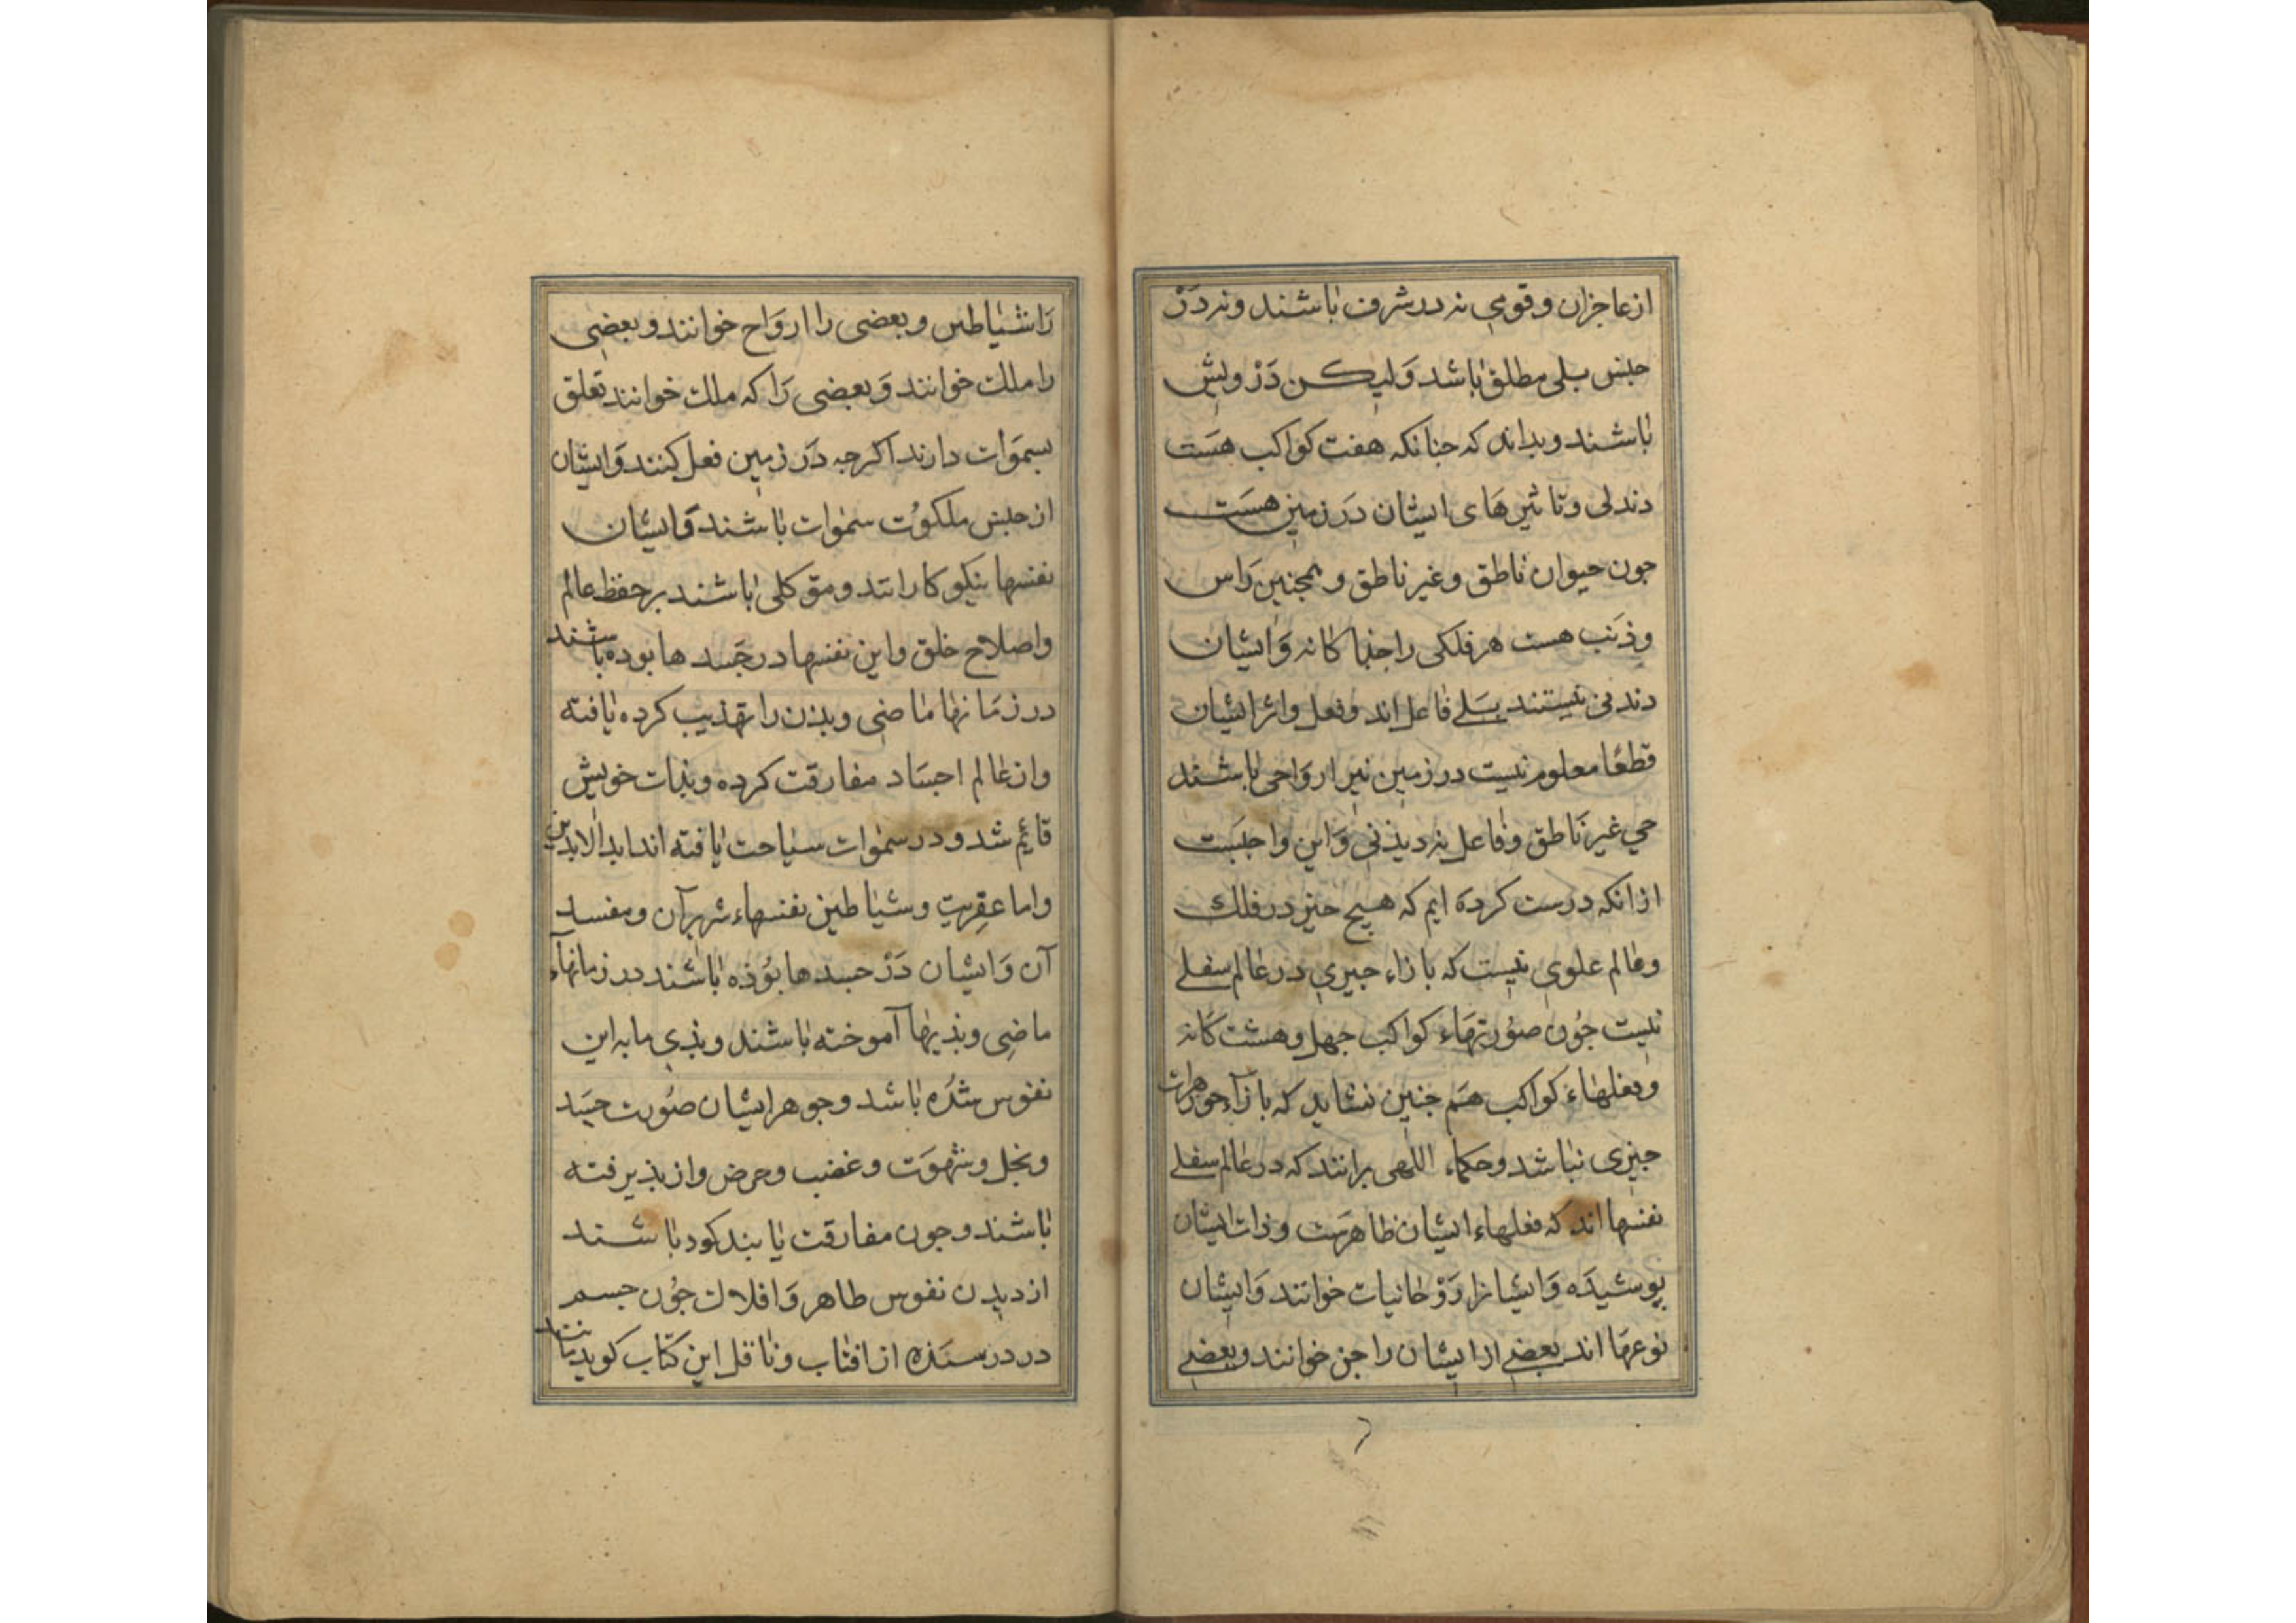 ازعاجزان وقومی نه در شرف باشند ونه در
جنس بلی مطلق باشد ولیکن درویش
باشند وبدانه که جنانکه هفت کواکب هست
دندلی وتاثیرهای ایشان در زمین هست
جون حیوان ناطق وغیر ناطق و همجنین راس
وذنب هست هر فلکی را جدا کانه وایشان
دندنی نیستند بلے فاعل اند وفعل واثر ایشان
قطعا معلوم نیست در زمین نیز ارواحی باشند
حي غیر ناطق وفاعل نه دیذنی واین واجبست
ازانکه درست کرده ایم که هیج جیز در فلک
وعالم علوی نیست که بازاء جیزي در عالم سفلے
نیست جون صورتهاء کواکب جهل وهشت کانه
وفعلهاء کواکب هم جنین نشاید که بازاء جوهرات
جیزی نباشد وحکماء اللهی برانند که در عالم سفلے
نفسها اند که فعلهاء ایشان ظاهرست وذات ایشان
پوشیده وایشانرا روحانیات خوانند وایشان
نوعها اند بعضے ازایشان را جن خوانند وبعضے
را شیاطین وبعضی را ارواح خوانند وبعضی
را ملک خوانند وبعضی را که ملک خوانند تعلق
بسموات دارند اکرجه در زمین فعل کنند وایشان
از جنس ملکوت سموات باشند وایشان
نفسها نیکو کارانند وموکلی باشند بر حفظ عالم
واصلاح خلق واین نفسها در جسد ها بوده باشند
در زمانها ماضی وبدن را تهذیب کرده یافته
واز عالم اجساد مفارقت کرده وبذات خویش
قائم شد ودر سموات سیاحت یافته اند ابد الابدین
واما عقریت وشیاطین نفسهاء شریرآن ومفسد
آن وایشان در جسد ها بوذه باشند در زمانهاء
ماضی وبذیها آموخته باشند وبذي مایه این
نفوس شده باشد وجوهر ایشان صورت حسد
وبخل وشهوت وغضب وحرص واز بذیرفته
باشند وجون مفارقت یابند کور باشند
از دیدن نفوس طاهر وافلاک جون جسم
درد رسنده از افتاب وناقل این کتاب کوید